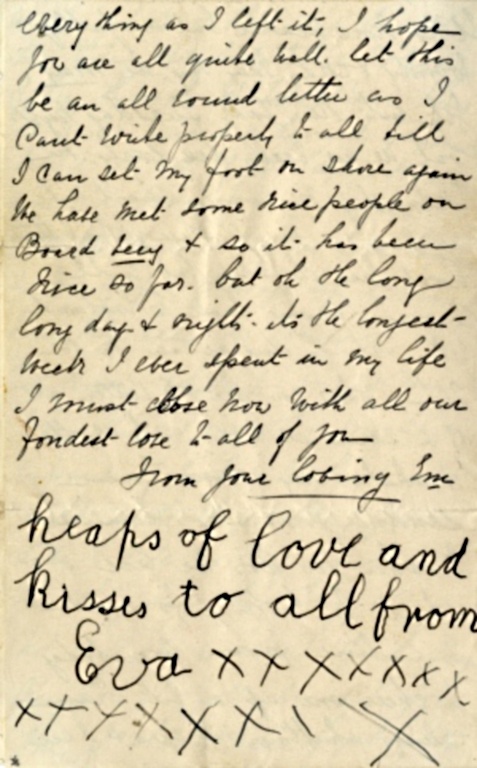 everything as I left it, I hope
you are all quite well. let this
be an all round letter as I
Cant write properly to all till
I can set my foot on shore again
We have met some nice people on
Board Lucy & so it has been
nice so far. but oh the long
long day & night. its the longest
Week I ever spent in my life
I must close now With all our
fondest love to all of you
From your loving Em
heaps of love and
kisses to all from
Eva X X X X X X X
X X X X X X \ X